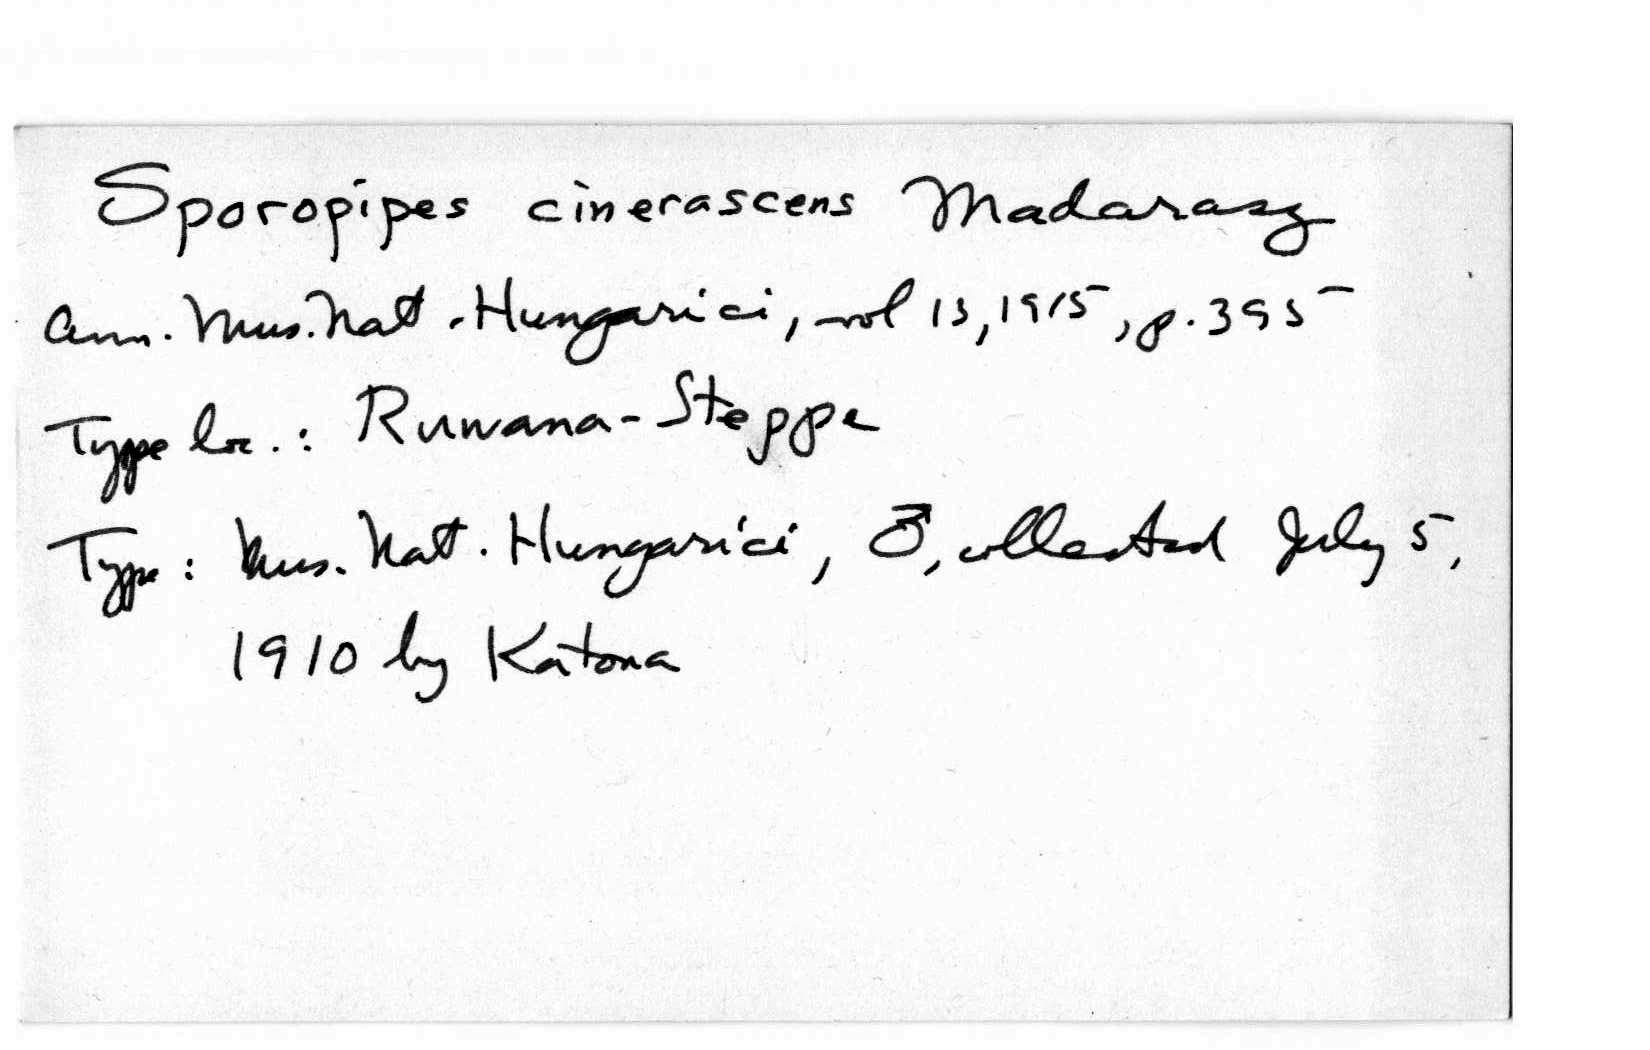 Sporopipes cinerascens Madarasz
Ann. Mus. Nat. Hungarici, vol 13, 1915, p. 395
Type loc.: Ruwana-Steppe
Type: Mus. Nat. Hungarici, ♂, collected July 5,
1910 by Katona